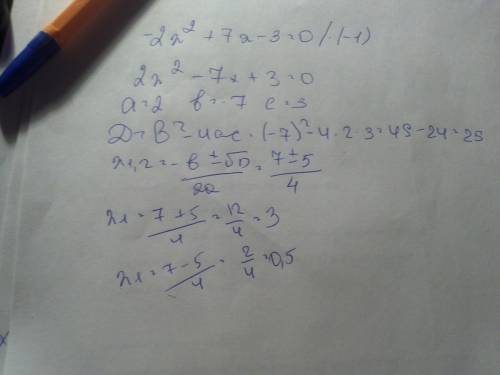 -2x² + 7x - 3 = 0 / (-1)
2x² - 7x + 3 = 0
a = 2 в = -7 c = 3
Д = В² - 4ac = (-7)² - 4 · 2 · 3 = 49 - 24 = 25
x1,2 = -в ± √D / 2a = 7 ± 5 / 4
x1 = 7 + 5 / 4 = 12 / 4 = 3
x1 = 7 - 5 / 4 = 2 / 4 = 0,5